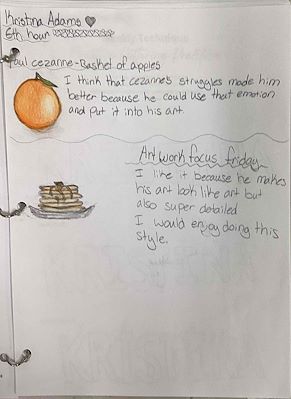 Kristina Adams
6th hour
Paul cezanne-Basket of apples
I think that cezanne's struggles made him
better because he could use that emotion
and put it into his art.
Art work focus friday
I like it because he makes
his art look like art but
also super detailed
I would enjoy doing this
style.